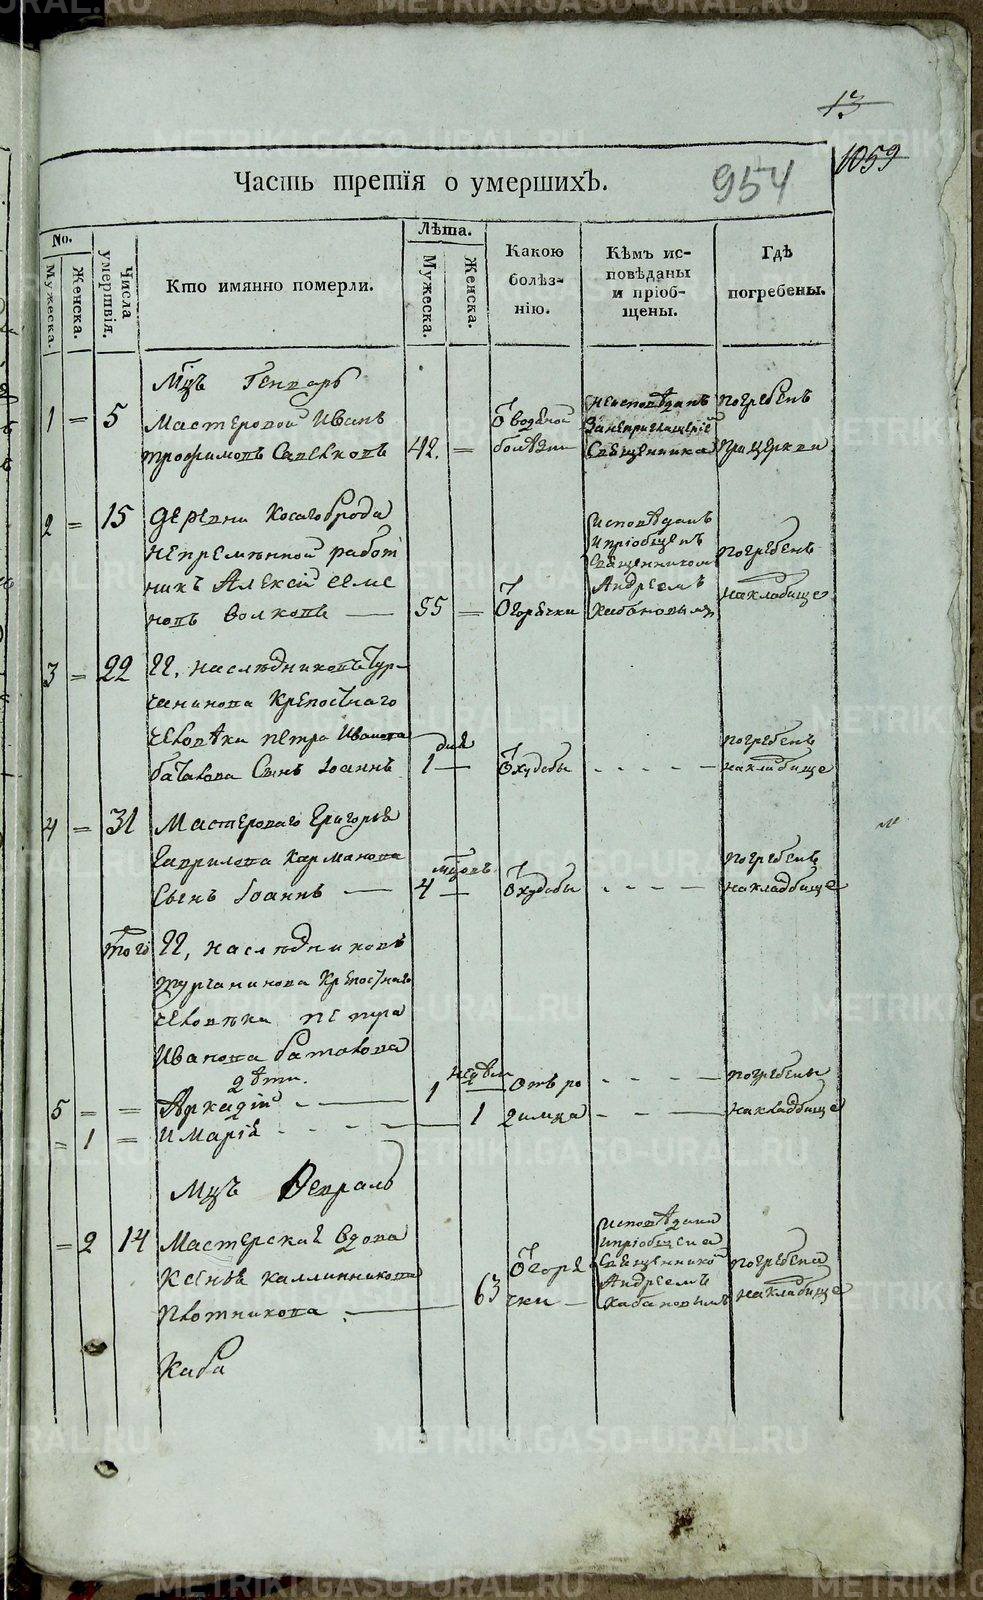 13
1059
Часть третія о умершихъ.
954
No.
Мужеска.
Женска.
Числа умертвія.
Кто имянно померли.
Лѣта.
Мужеска.
Женска.
Какою болѣз-
нію.
Кѣмъ ис-
повѣданы
и пріоб-
щены.
Гдѣ
погребены.
Мцъ Генварь
1 = 5 Мастеровой Иванъ
трофимовъ Савенковъ 42. =
Ѿ водяной
болѣзни
неисповѣданъ
занеприглашеніе
Священника
погребенъ
Прицеркви
2 = 15 деревни Косагоброда
непремѣнной работ
никъ Алексій семе
новъ Волковъ — 55 =
Ѿ горячки
исповѣданъ
ипріобщенъ
Священникомъ
Андреемъ
Хабановымъ
погребенъ
накладбище
3 = 22 ГГ, наслѣдниковъ Тур-
чанинова Крепостнаго
человѣка петра Иванова
батакова Сынъ Іоаннъ
дня
1 —
Ѿ худобы
погребенъ
накладбище
4 = 31 Мастероваго Григорья
Гаврилова Карманова
Сынъ Іоаннъ —
мцовъ
4 —
Ѿ худобы
погребенъ
накладбище
того ГГ, наслѣдниковъ
турчанинова Крепостнаго
человѣка петра
Иванова батакова
дѣти.
5 = = Аркадій — 1
недѣли
отъ ро
погребены
= 1 = и Марія 1
димца
накладбище
Мцъ Февраль
= 2 14 Мастерская вдова
Ксенья каллиникова
плотникова — 63
Ѿ горя
чки —
исповѣдана
ипріобщена
Священнико
Андреемъ
Хабановымъ
погребена
накладбище
Хаба
METRIKI.GASO-URAL.RU